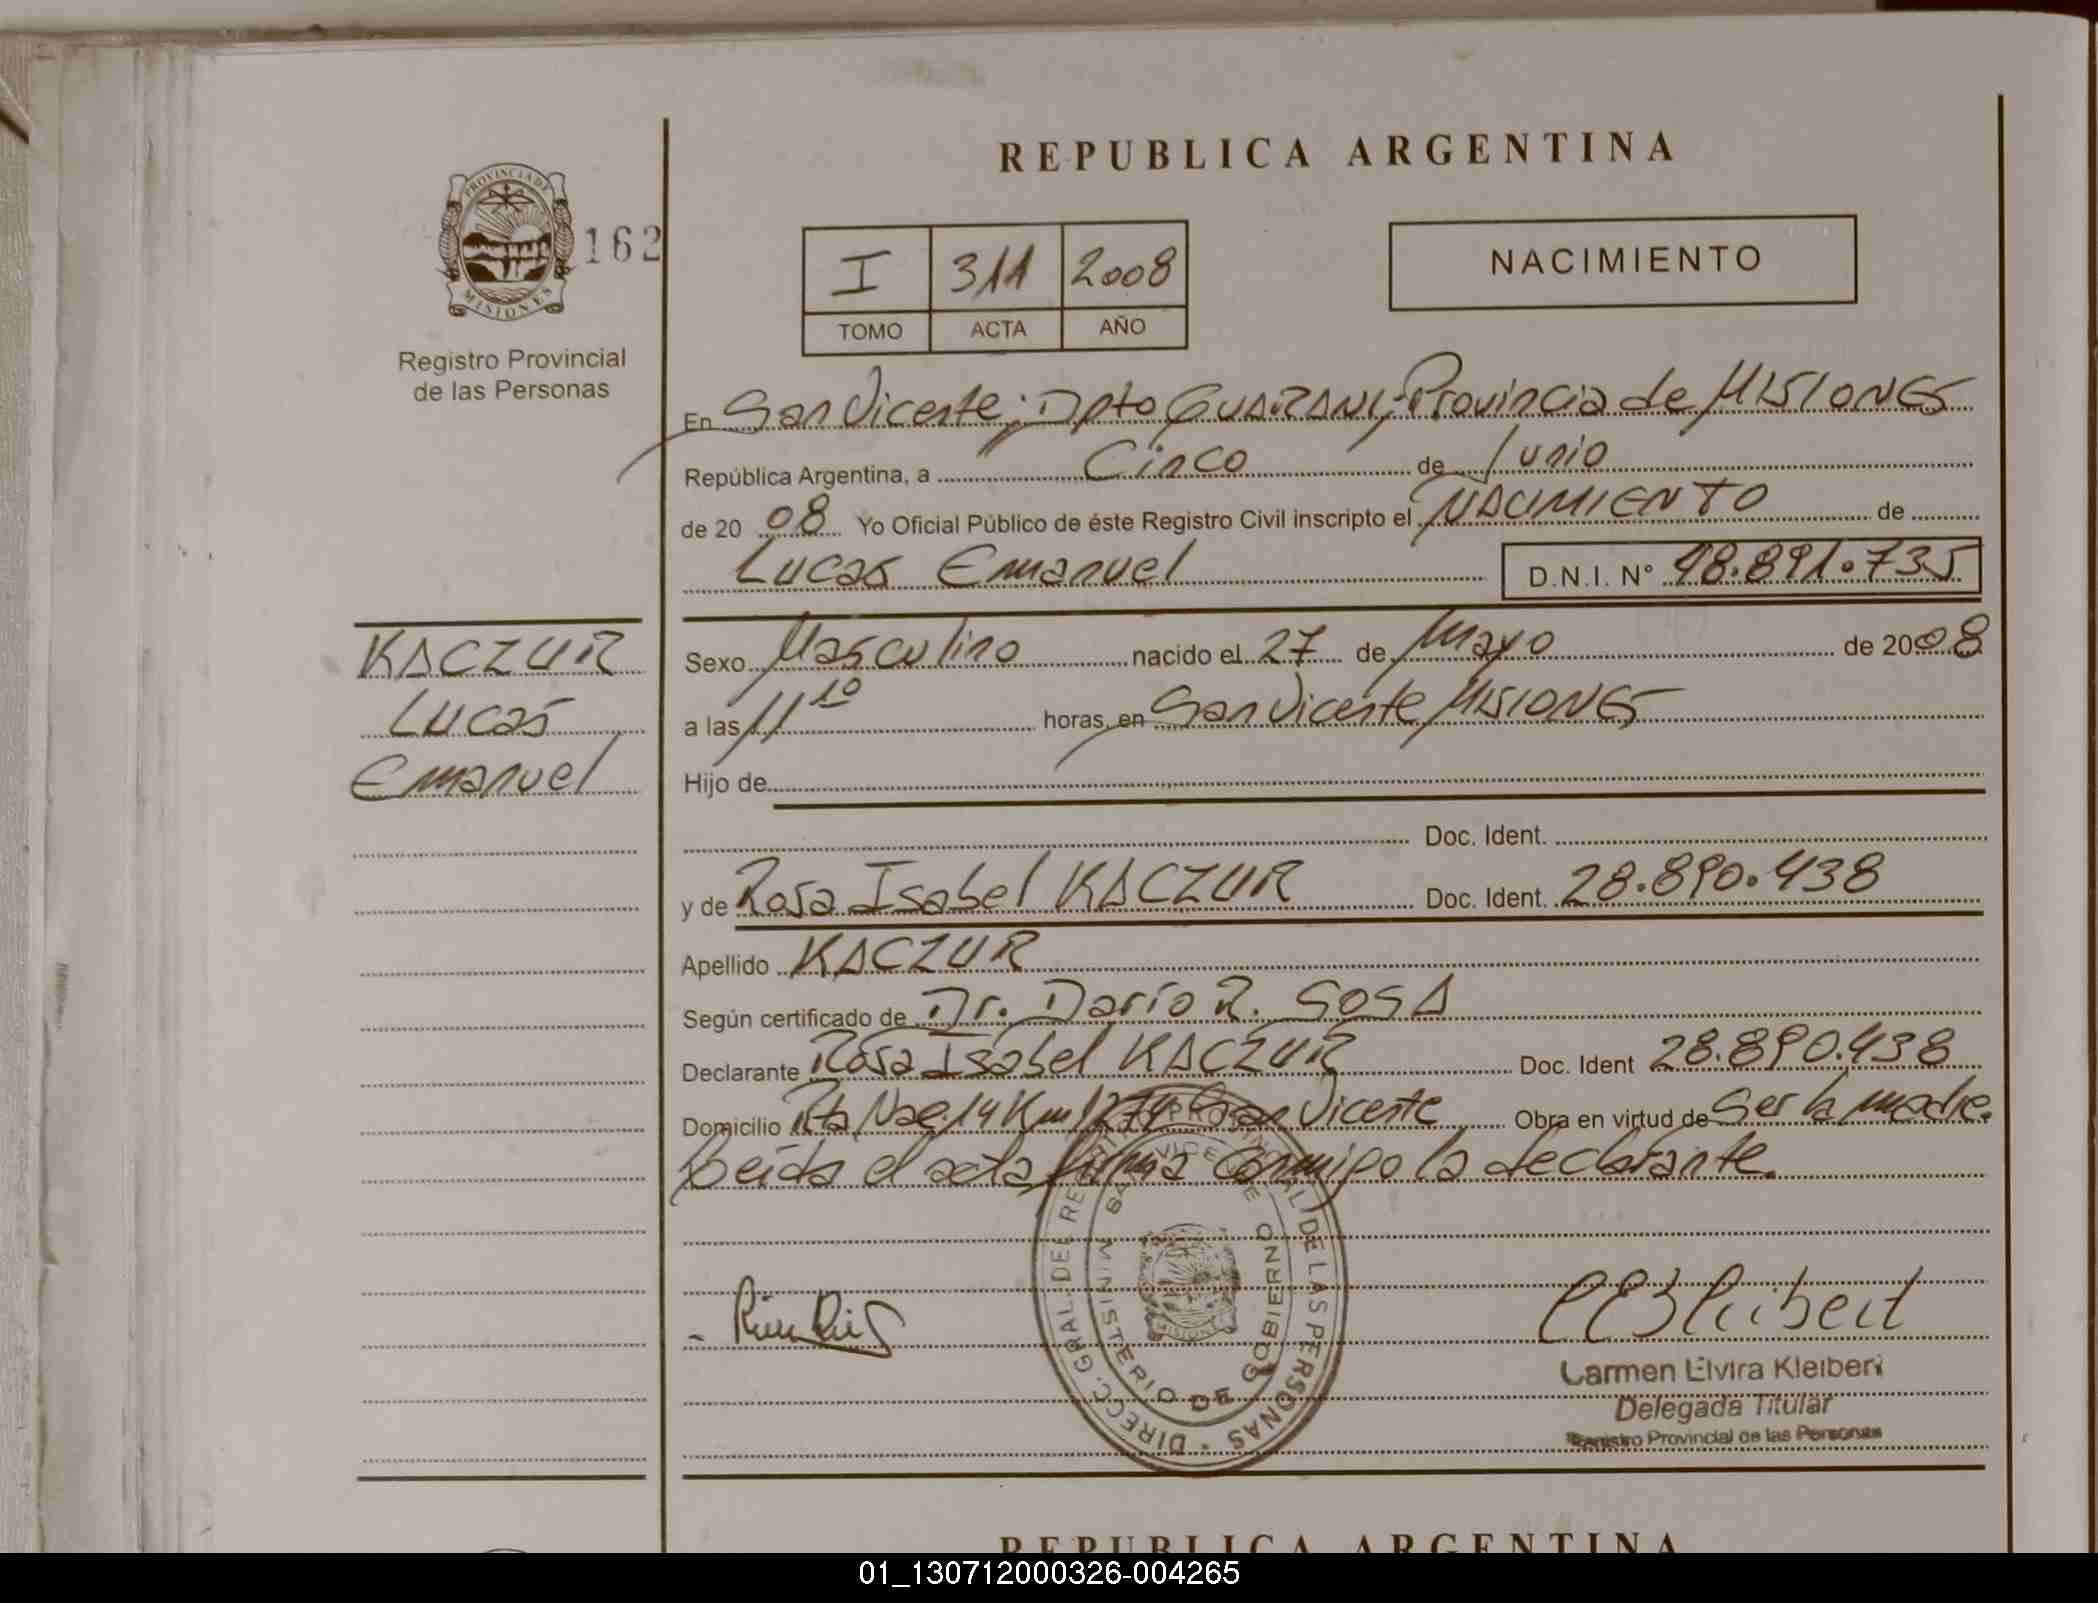 REPUBLICA ARGENTINA
PROVINCIA DE
MISIONES
162
Registro Provincial
de las Personas
I 311 2008
TOMO ACTA AÑO
NACIMIENTO
En San Vicente; Dpto GUARANI, Provincia de MISIONES
República Argentina, a Cinco de Junio
de 20 08 Yo Oficial Público de éste Registro Civil inscripto el NACIMIENTO de
Lucas Emanuel D.N.I. N° 48.891.735
KACZUR
Lucas
Emanuel
Sexo Masculino nacido el 27 de Mayo de 2008
a las 11 10 horas, en San Vicente MISIONES
Hijo de
Doc. Ident.
y de Rosa Isabel KACZUR Doc. Ident. 28.890.438
Apellido KACZUR
Según certificado de Dr. Darío R. SOSA
Declarante Rosa Isabel KACZUR Doc. Ident 28.890.438
Domicilio Rta Nac. 14 Km 1274 San Vicente Obra en virtud de Ser la madre.
Leída el acta firma conmigo la declarante.
DIRECC. GRAL. DEL REGISTRO PROVINCIAL DE LAS PERSONAS
MINISTERIO DE GOBIERNO
MISIONES
Carmen Elvira Kleibert
Delegada Titular
Registro Provincial de las Personas
REPUBLICA ARGENTINA
01_130712000326-004265